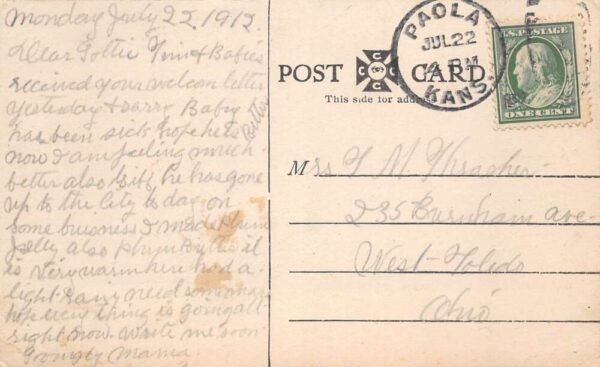 Monday July 22, 1912.
Dear Lottie Tim & Babies
received your welcom letter
yesterday & sorry Baby
has been sick hope he is
better
now I am feeling much
better also Biff he has gone
up to the City to day on
some buisness I made plum
Jelly also plum Butter it
is very warm here had a
light Rain need some more
hope every thing is going all
right now. Write me soon
Mama.
POST CARD.
This side for address
PAOLA
JUL 22
KANS.
U.S. POSTAGE
ONE CENT
Mrs T M Thrasher
235 Burnham ave-
West-Toledo
Ohio